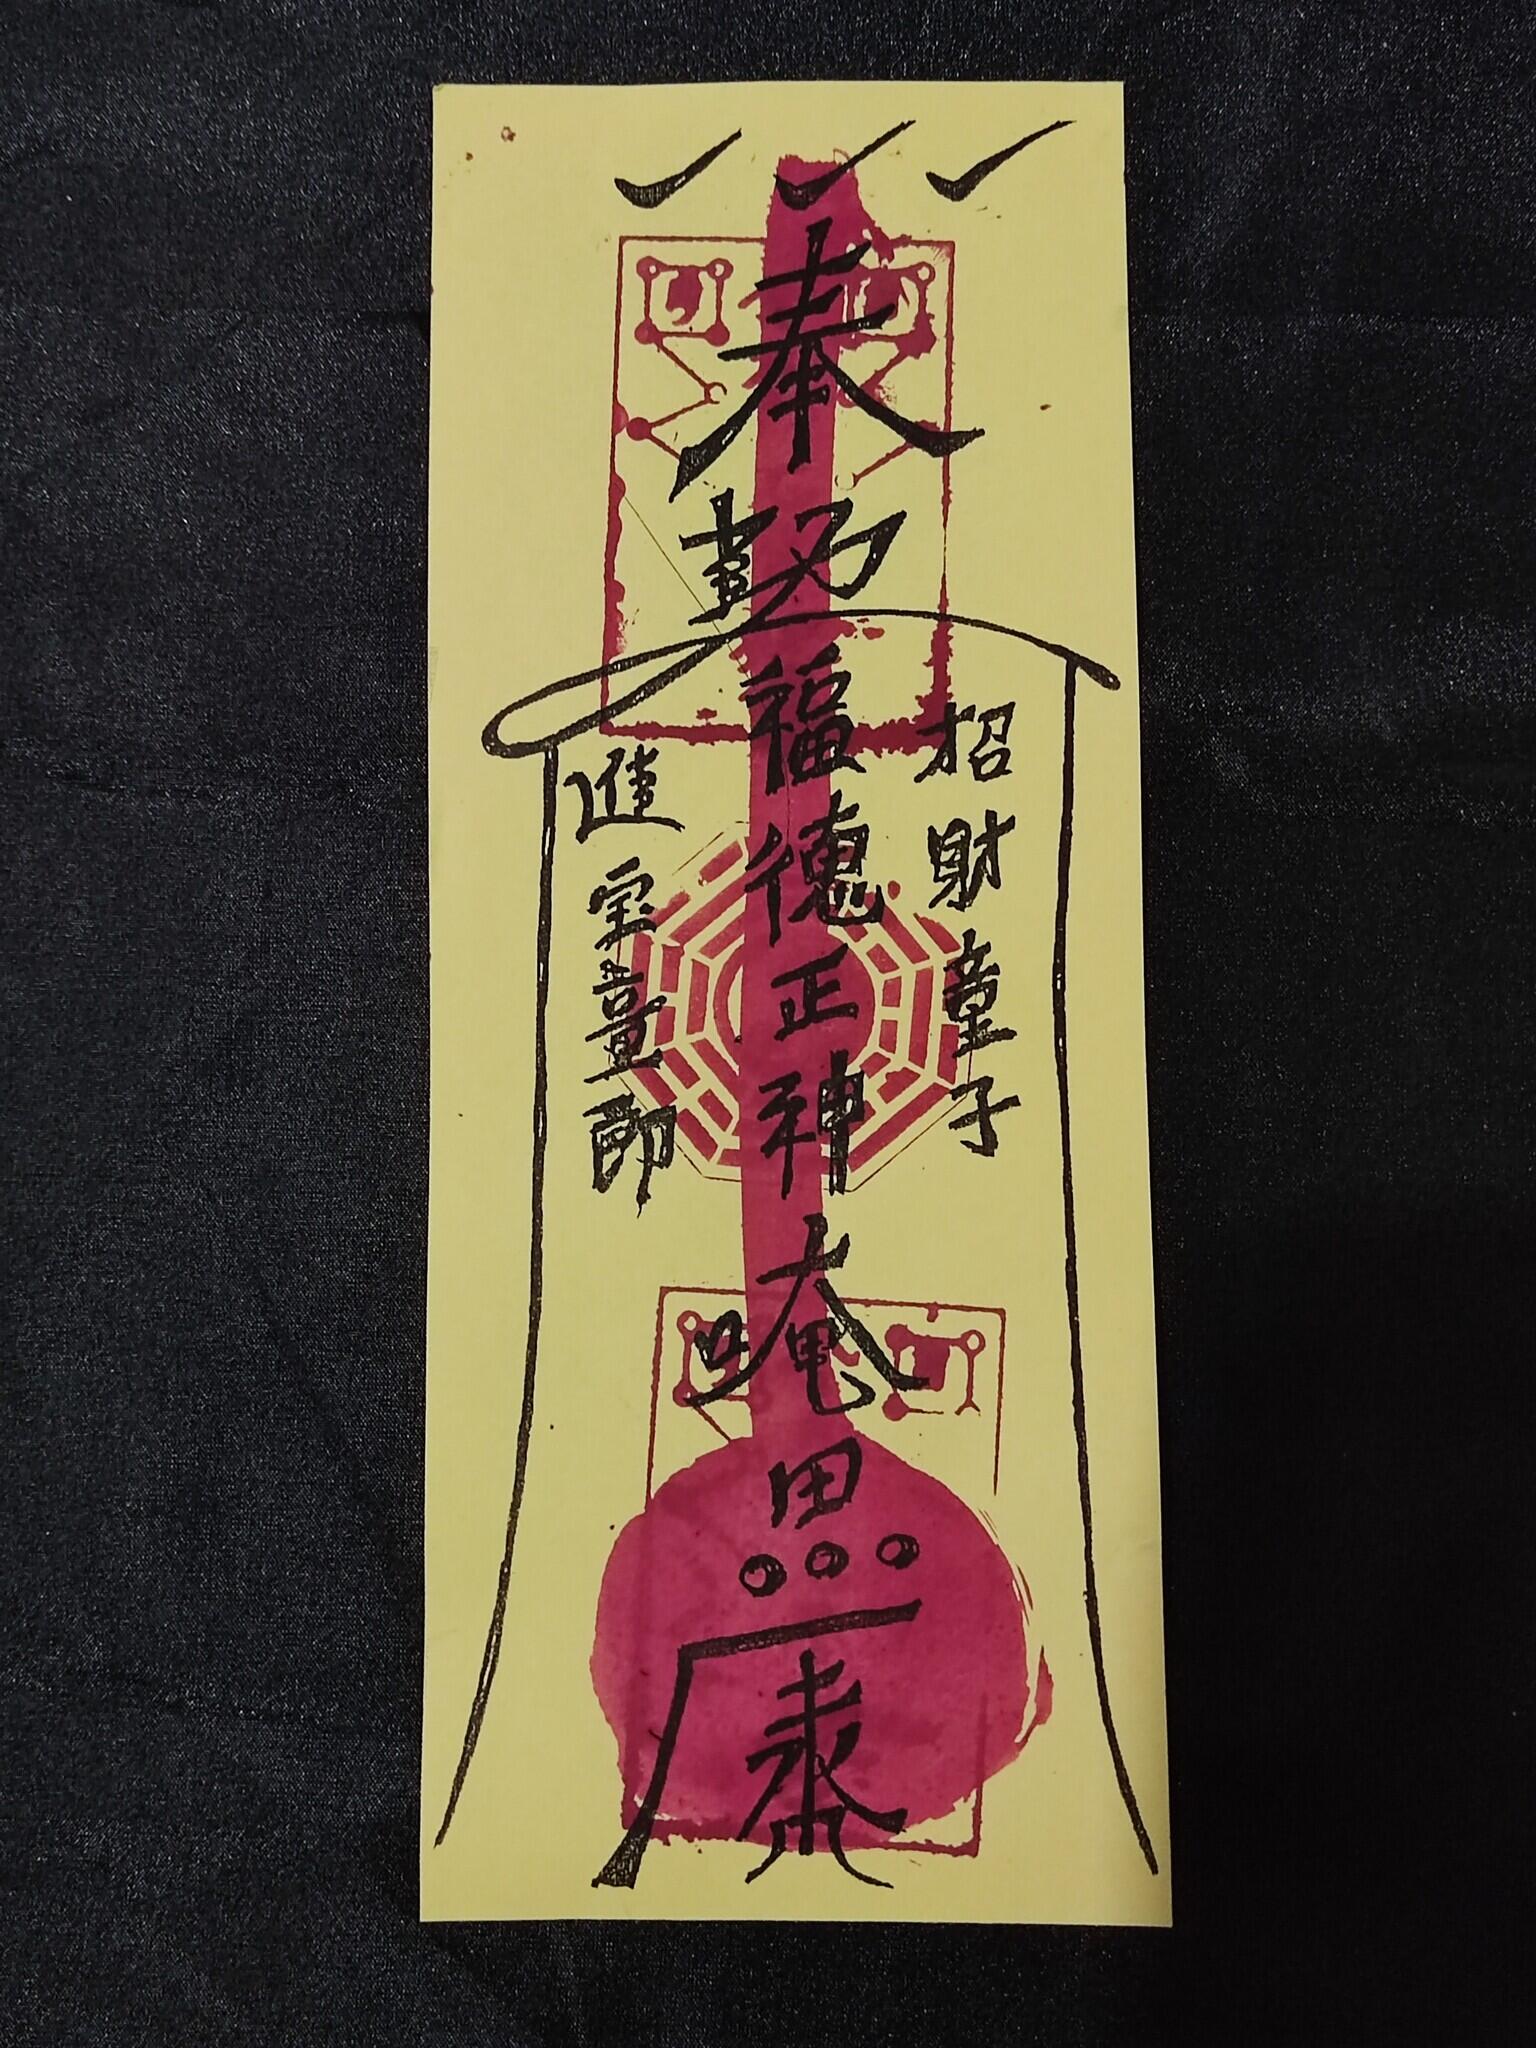 招財童子
奉勅福德正神唵
進宝童郎